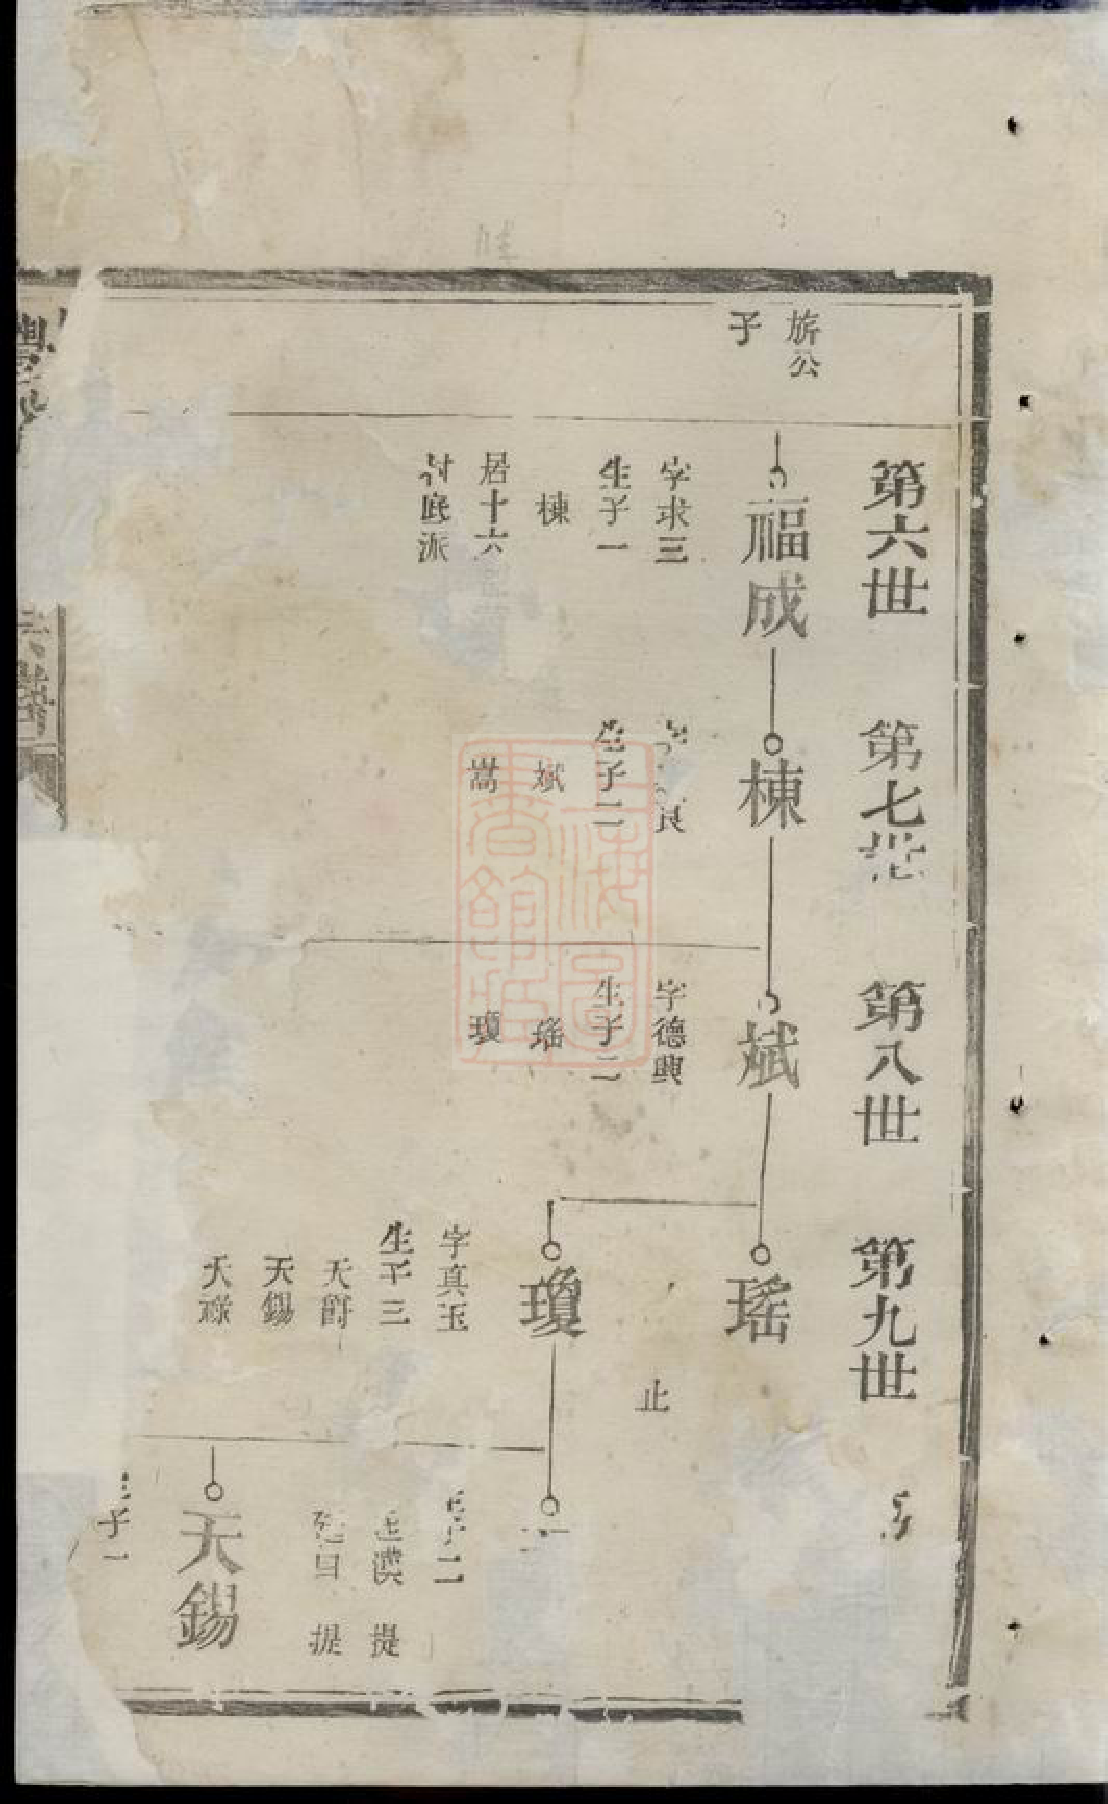 旂公
子
第六世
福成
字求三
生子一
棟
居十六
村底派
第七世
棟
良
生子二
斌
嵩
第八世
斌
字德興
生子二
瑤
瓊
第九世
瑤
止
瓊
字真玉
生子三
天爵
天錫
天祿
子二
漢 提
提
天錫
子一
上海圖
書館藏